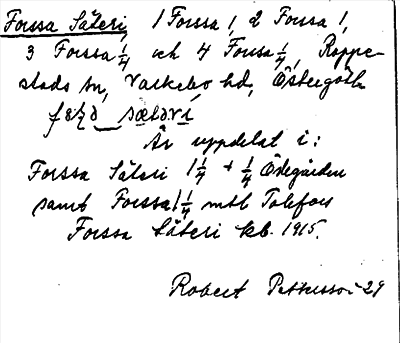 Forssa Säteri, 1 Forssa 1, 2 Forssa 1,
3 Forssa 1/4 och 4 Forssa 1/4, Rappe-
stads sn, Valkebo hd, Östergötl.
Är uppdelat i:
Forssa Säteri 1 1/4 + 1/4 Ödegården
samt Forssa 1 1/4 mtl Tolefors
Forssa Säteri kb. 1915.
Robert Pettersson 29